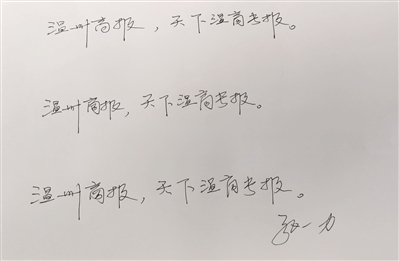 温州商报，天下温商专报。
温州商报，天下温商专报。
温州商报，天下温商专报。
张一力